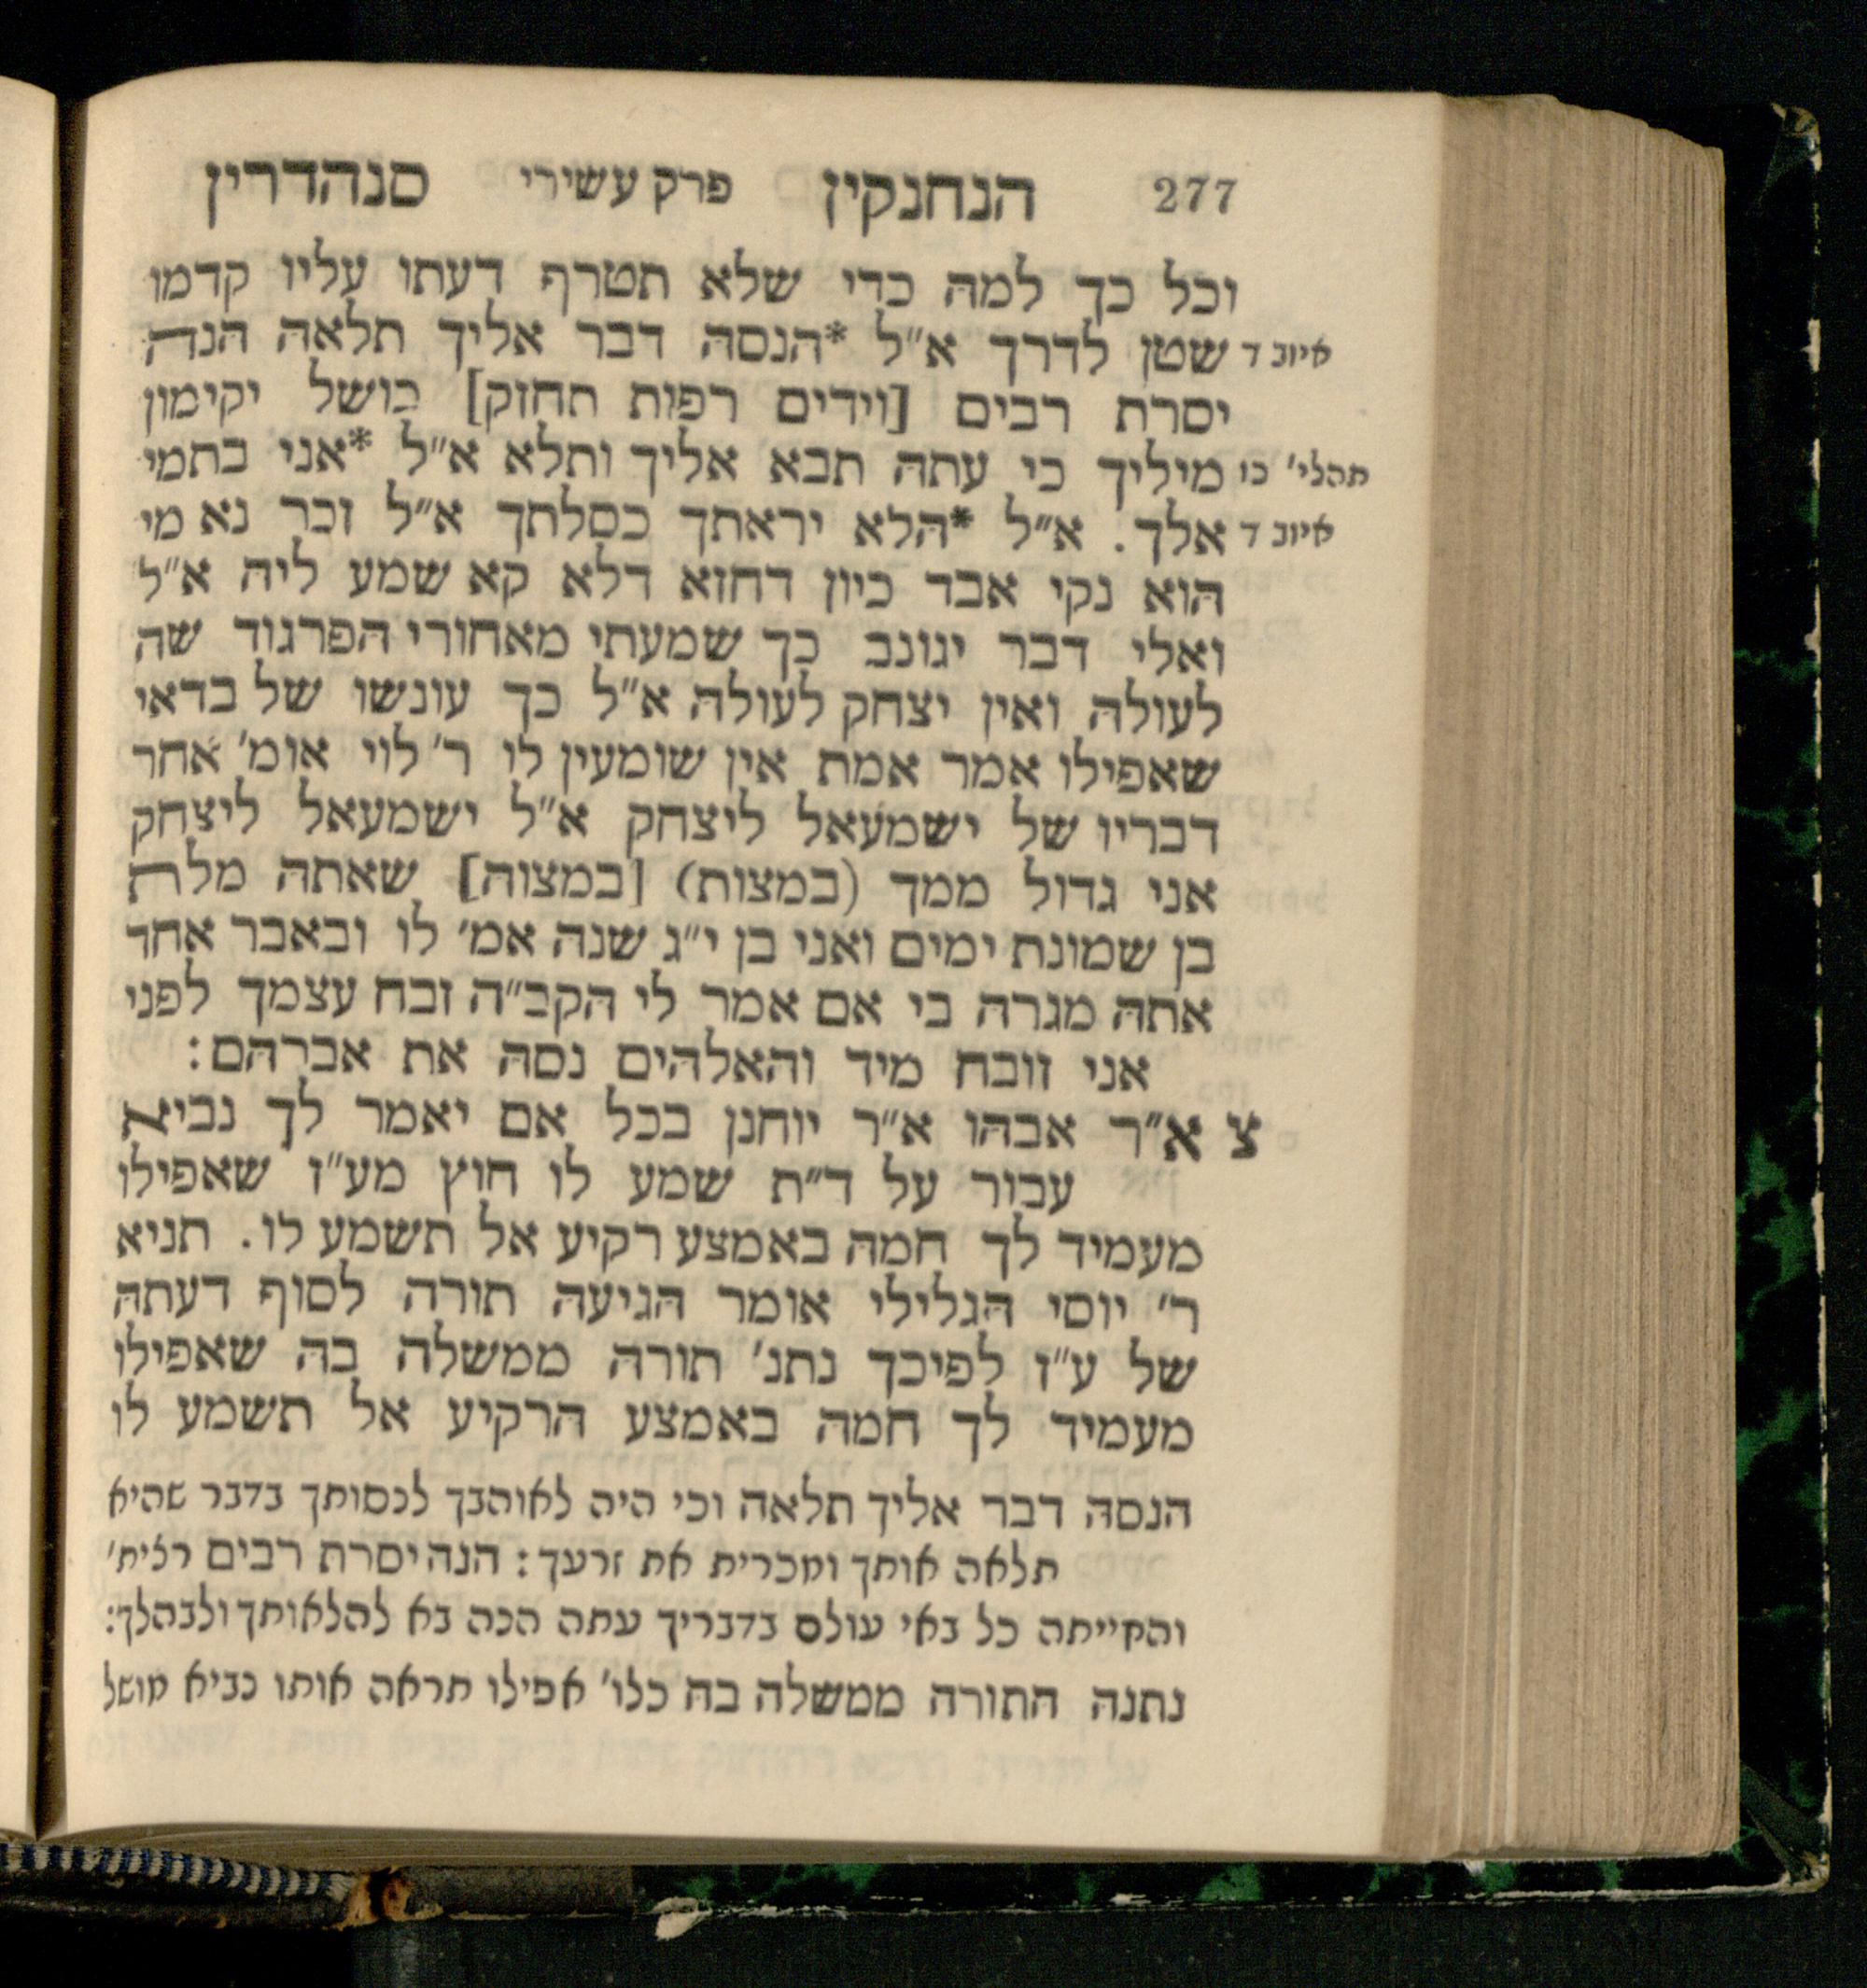 277 הנחנקין פרק עשירי סנהדרין
וכל כך למה כדי שלא תטרף דעתו עליו קדמו
איוב ד שטן לדרך א״ל *הנסה דבר אליך תלאה הנה
יסרת רבים [וידים רפות תחזק] כושל יקימון
תהלי׳ כו מיליך כי עתה תבא אליך ותלא א״ל *אני בתמי
איוב ד אלך. א״ל *הלא יראתך כסלתך א״ל זכר נא מי
הוא נקי אבד כיון דחזא דלא קא שמע ליה א״ל
ואלי דבר יגונב כך שמעתי מאחורי הפרגוד שה
לעולה ואין יצחק לעולה א״ל כך עונשו של בדאי
שאפילו אמר אמת אין שומעין לו ר׳ לוי אומ׳ אחר
דבריו של ישמעאל ליצחק א״ל ישמעאל ליצחק
אני גדול ממך (במצות) [במצוה] שאתה מלת
בן שמונת ימים ואני בן י״ג שנה אמ׳ לו ובאבר אחד
אתה מגרה בי אם אמר לי הקב״ה זבח עצמך לפני
אני זובח מיד והאלהים נסה את אברהם:
צ א״ר אבהו א״ר יוחנן בכל אם יאמר לך נביא
עבור על ד״ת שמע לו חוץ מע״ז שאפילו
מעמיד לך חמה באמצע רקיע אל תשמע לו. תניא
ר׳ יוסי הגלילי אומר הגיעה תורה לסוף דעתה
של ע״ז לפיכך נתנ׳ תורה ממשלה בה שאפילו
מעמיד לך חמה באמצע הרקיע אל תשמע לו
הנסה דבר אליך תלאה וכי היה לאוהבך לנסותך בדבר שהיא
תלאה אותך ומכרית את זרעך: הנה יסרת רבים רצית׳
והקייתה כל באי עולם בדבריך עתה הנה בא להלאותך ולבהלך:
נתנה התורה ממשלה בה כלו׳ אפילו תראה אותו נביא מושל